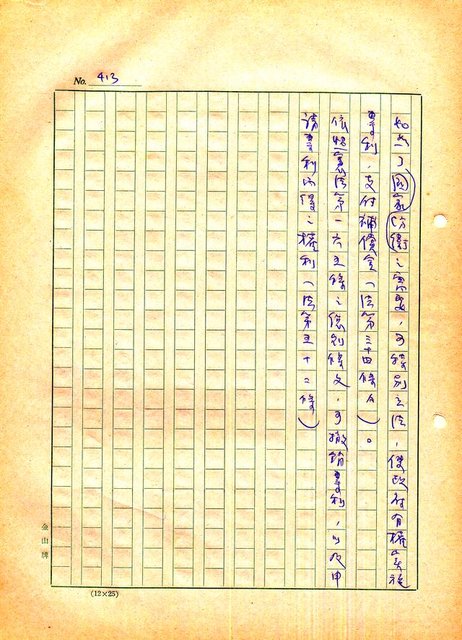 No. 413
如为了國家防衛之需要，可特別立法，使政府有權实施
專利，支付補償金（法第三十四條A）。
依照憲法第一六五條之德列條文，可撤銷專利，以及申
請專利而得之權利（法第五十二條）
金山牌
(12×25)